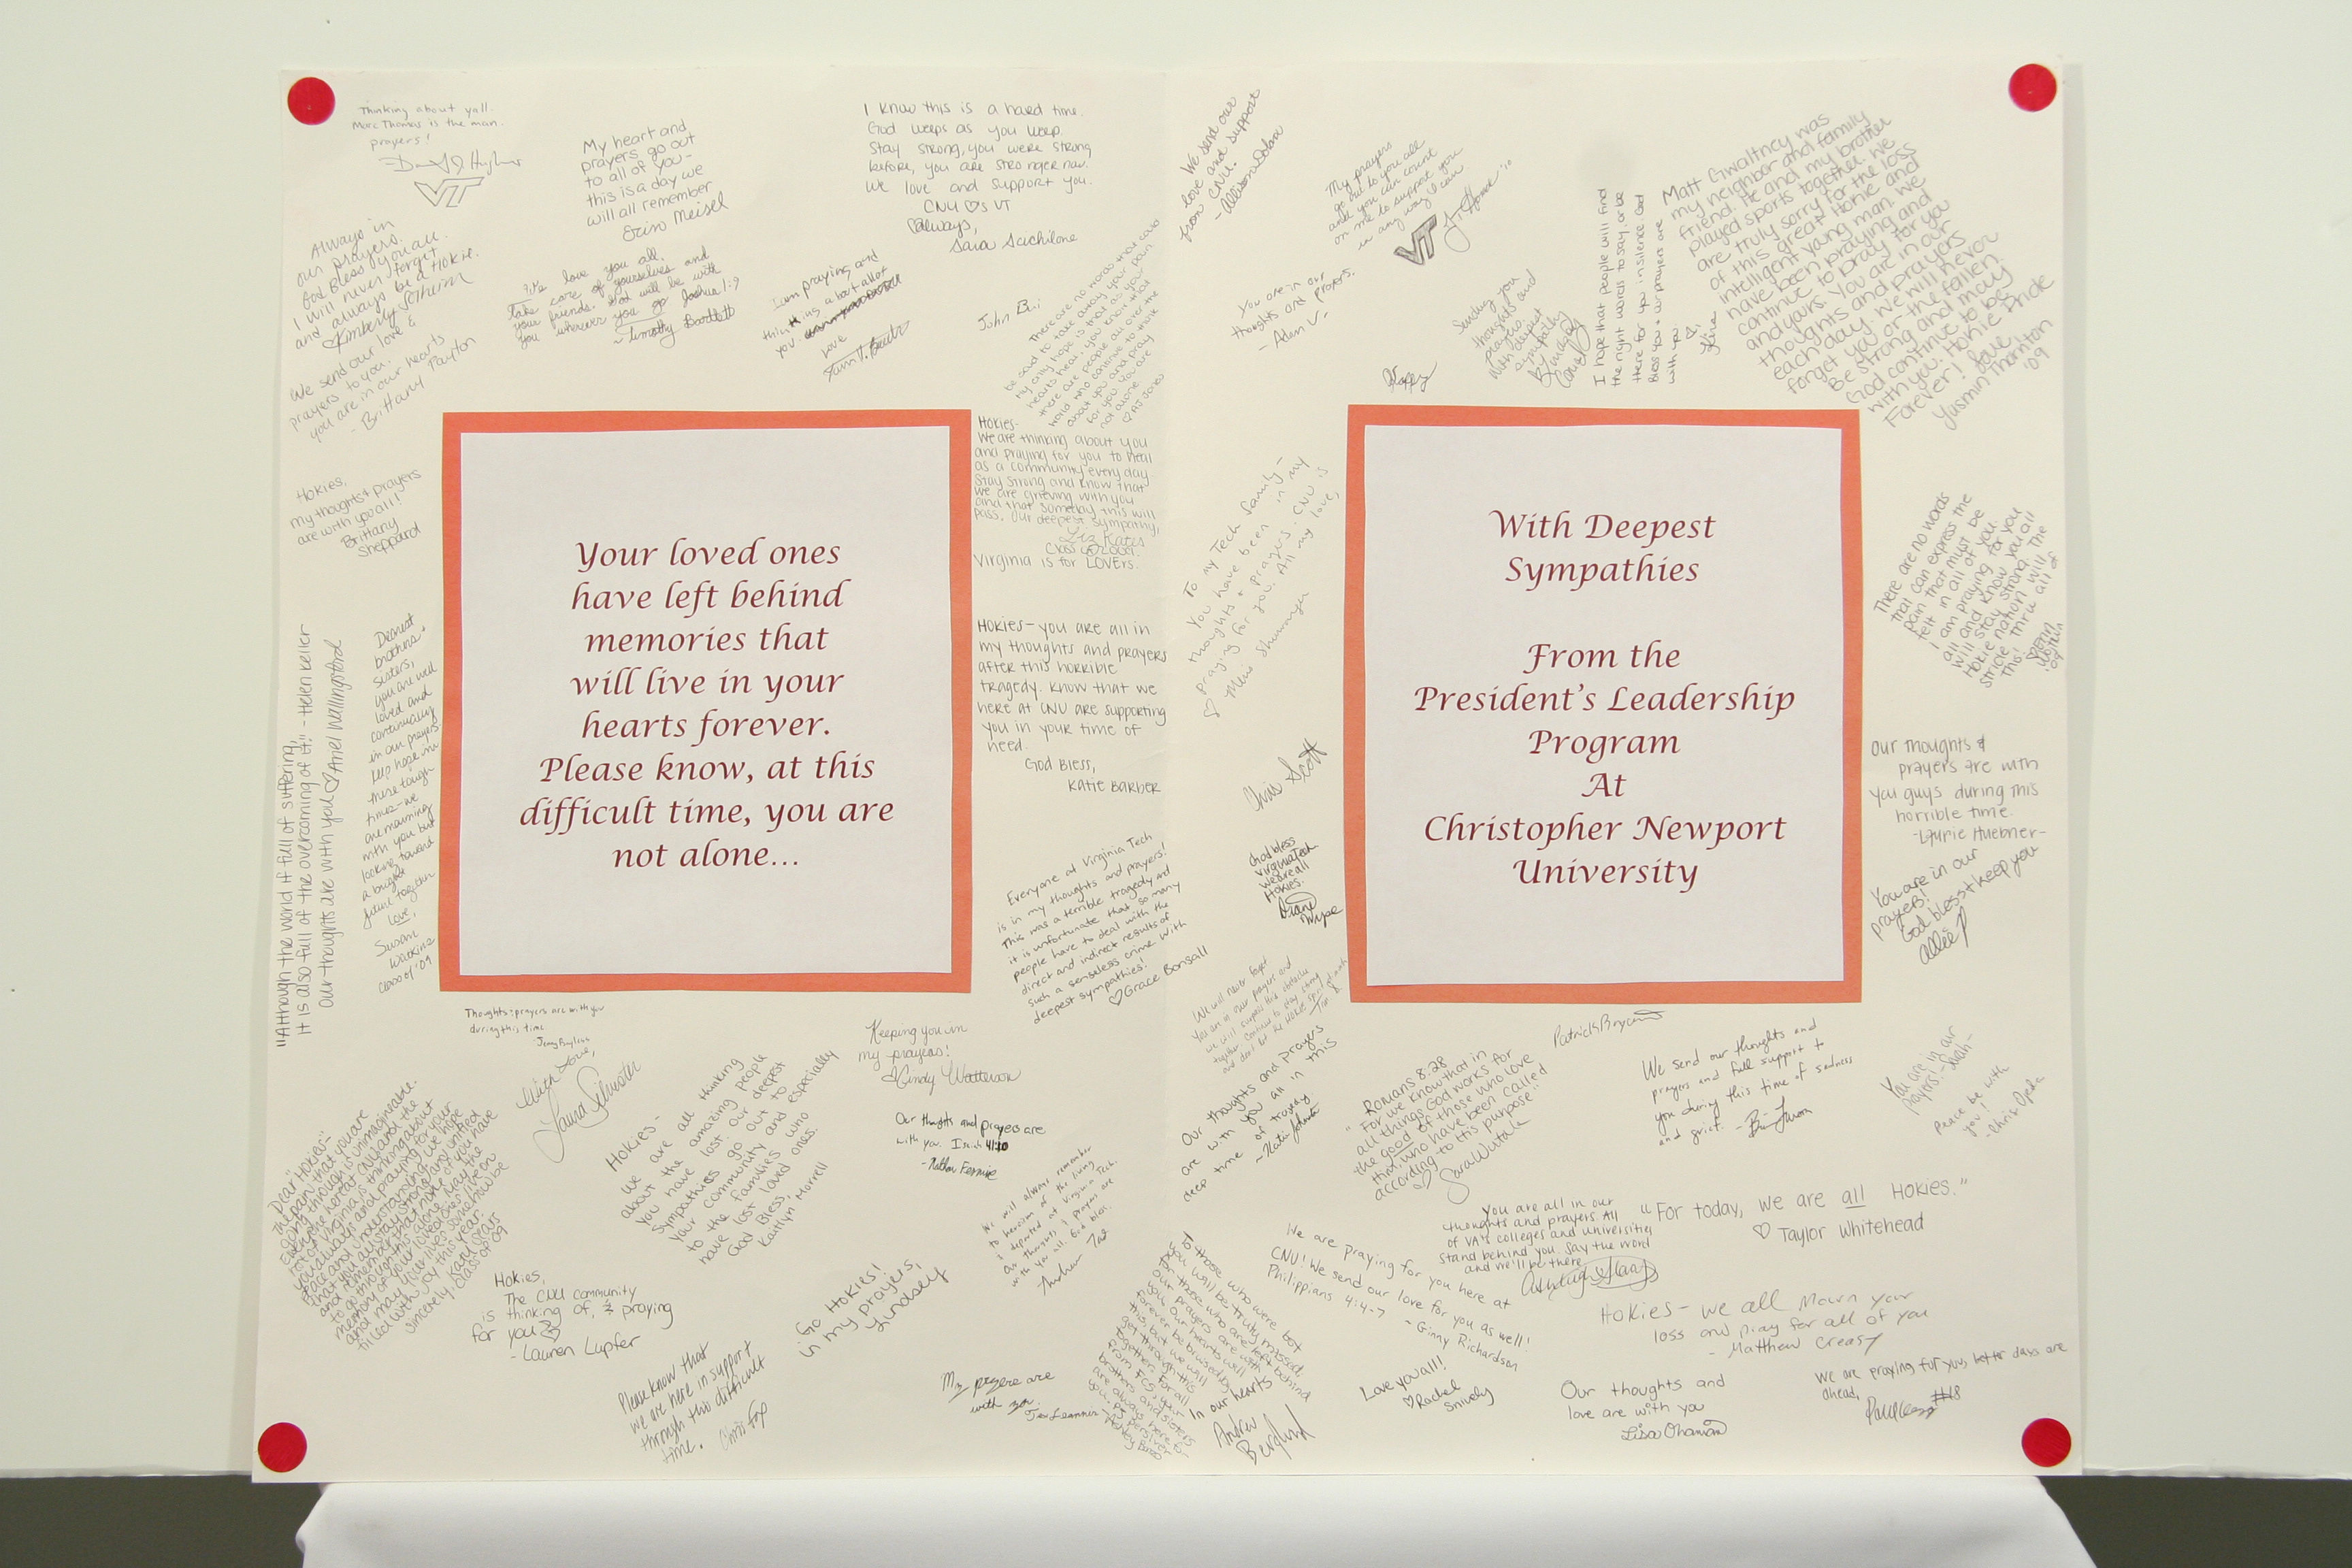 Thinking about yall.
Marc Thomas is the man.
prayers!
VT
My heart and
prayers go out
to all of you-
this is a day we
will all remember
Erin Meisel
I know this is a hard time.
God weeps as you weep.
Stay strong, you were strong
before, you are stronger now.
We love and support you.
CNU ♡s VT
Always,
Sara
Always in
our prayers.
God Bless you all.
I will never forget
and always be a Hokie.
Kimberly
We love you all.
Take care of yourselves and
your friends. God will be with
you wherever you go Joshua 1:9
~Timothy Bartlett
I am praying and
thinking about all of
you
Love
We send our love &
prayers to you.
you are in our hearts
- Brittany Payton
John
There are no words that could
be said to take away your pain
my only hope is that as your
hearts heal, you know that
there are people all over the
world who continue to think
about you and pray
for you. you are
not alone.
♡ AJ Jones
Hokies-
We are thinking about you
and praying for you to heal
as a community every day
Stay strong and know that
we are grieving with you
and that someday this will
pass. Our deepest sympathy,
Liz
Class of 2009.
Virginia is for LOVErs.
Hokies,
my thoughts & prayers
are with you all!
Brittany
Sheppard
Your loved ones
have left behind
memories that
will live in your
hearts forever.
Please know, at this
difficult time, you are
not alone...
"Although the world if full of suffering,
it is also full of the overcoming of it." - Helen Keller
Our thoughts are with you ♡ Ariel Wallingsford
Dearest
brothers &
sisters,
you are well
loved and
continually
in our prayers
keep hope in
these tough
times - we
are mourning
with you but
looking toward
a brighter
future together
Love,
Susan
Watkins
class of '09
Hokies- you are all in
my thoughts and prayers
after this horrible
tragedy. Know that we
here at CNU are supporting
you in your time of
need.
God Bless,
Katie Barber
Everyone at Virginia Tech
is in my thoughts and prayers!
This was a terrible tragedy and
it is unfortunate that so many
people have to deal with the
direct and indirect results of
such a senseless crime. With
deepest sympathies!
♡Grace Bonsall
Thoughts & prayers are with you
during this time
With Love,
Laura Silvester
Keeping you in
my prayers!
♡Cindy Watterson
Our thoughts and prayers are
with you. Isaiah
Dear Hokies-
The pain that you are
going through is unimagineable.
Even the heart of CNU and the
rest of Virginia is thinking about
you always and praying for your
peace and understanding. We hope
that you all stay strong and united
and remember that none of you have
to go through this alone. May the
memory of your loved ones live on
and may your lives somehow be
filled with joy this year.
Sincerely, Kari Sears
class of '09
Hokies-
We are all thinking
about the amazing people
you have lost. Our deepest
sympathies go out to
your community and especially
to the families who
have lost loved ones.
God Bless,
Kaitlyn Morrell
We will always remember
the heroism of the living
& departed at Virginia Tech.
Our thoughts & prayers are
with you all. God bless.
Hokies,
The CNU community
is thinking of, & praying
for you
- Lauren Lupfer
Go Hokies!
in my prayers,
Lindsey
Please know that
we are here in support
through this difficult
time. Chris Fox
My prayers are
with you.
We send our
love and support
from CNU.
My prayers
go out to you all
and you can count
on me to support you
in any way I can
VT
You are in our
thoughts and prayers.
- Adam V-
Sending you
thoughts and
prayers.
With deepest
sympathy
I hope that people will find
the right words to say, or be
there for you in silence. God
Bless you & our prayers are
with you.
Matt Gwaltney was
my neighbor and family
friend. He and my brother
played sports together. We
are truly sorry for the loss
of this great Hokie and
intelligent young man. We
have been praying and
continue to pray for you
and yours. You are in our
thoughts and prayers
each day. We will never
forget you or the fallen.
Be strong and may
God continue to be
with you. Hokie Pride
Forever! Love
Yasmin Thornton
'09
To my Tech family-
You have been in my
thoughts & prayers. CNU is
praying for you. All my love,
Chris Scott
God bless
Virginia Tech
we are all
Hokies.
With Deepest
Sympathies
From the
President's Leadership
Program
At
Christopher Newport
University
There are no words
that can express the
pain that must be
felt in all of you.
I am praying for you
all and know you all
will stay strong. The
Hokie nation will
stride thru all of
this!
Our thoughts &
prayers are with
you guys during this
horrible time.
-Laurie Huebner-
You are in our
prayers!
God bless & keep you
We will never forget
You are in our prayers and
we will surpass this obstacle
together. Continue to stay strong
Our thoughts and prayers
are with you all in this
deep time of tragedy
~Katie Johnson
Patrick Bryant
Romans 8:28
"For we know that in
all things God works for
the good of those who love
him, who have been called
according to his purpose."
♡ Sara
We send our thoughts and
prayers and full support to
you during this time of sadness
and grief.
You are in our
prayers! -
Peace be with
you!
-Chris Opeda
You are all in our
thoughts and prayers. All
of VA's colleges and universities
stand behind you. Say the word
and we'll be there
"For today, we are all Hokies."
♡ Taylor Whitehead
We are praying for you here at
CNU! We send our love for you as well!
Philippians 4:4-7 - Ginny Richardson
Hokies- We all mourn your
loss and pray for all of you
- Matthew Creasy
Those of those who were lost
you will be truly missed,
for those who are left behind
our prayers are with
you. Our hearts will
forever be bruised by
this, but we will
get through this
together, for all
brothers and sisters
are always here for
In our hearts
Andrew
Berglund
Love you all!
♡Rachel
Snively
Our thoughts and
love are with you
Lisa Ohanian
We are praying for you, better days are
ahead,
#18